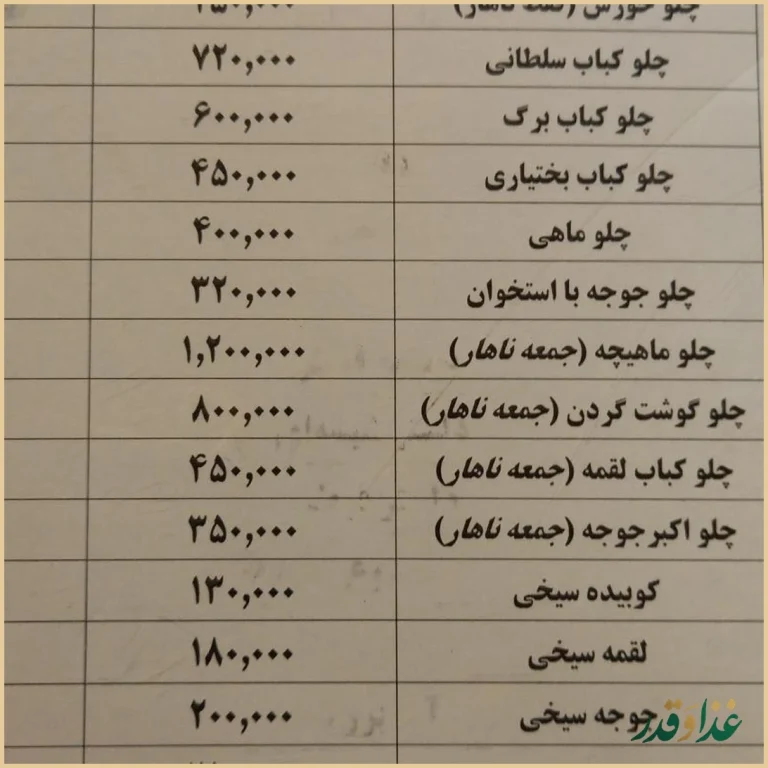 چلو خورش (فقط ناهار) ۲۵۰,۰۰۰
چلو کباب سلطانی ۷۲۰,۰۰۰
چلو کباب برگ ۶۰۰,۰۰۰
چلو کباب بختیاری ۴۵۰,۰۰۰
چلو ماهی ۴۰۰,۰۰۰
چلو جوجه با استخوان ۳۲۰,۰۰۰
چلو ماهیچه (جمعه ناهار) ۱,۲۰۰,۰۰۰
چلو گوشت گردن (جمعه ناهار) ۸۰۰,۰۰۰
چلو کباب لقمه (جمعه ناهار) ۴۵۰,۰۰۰
چلو اکبر جوجه (جمعه ناهار) ۳۵۰,۰۰۰
کوبیده سیخی ۱۳۰,۰۰۰
لقمه سیخی ۱۸۰,۰۰۰
جوجه سیخی ۲۰۰,۰۰۰
غذا و قدر